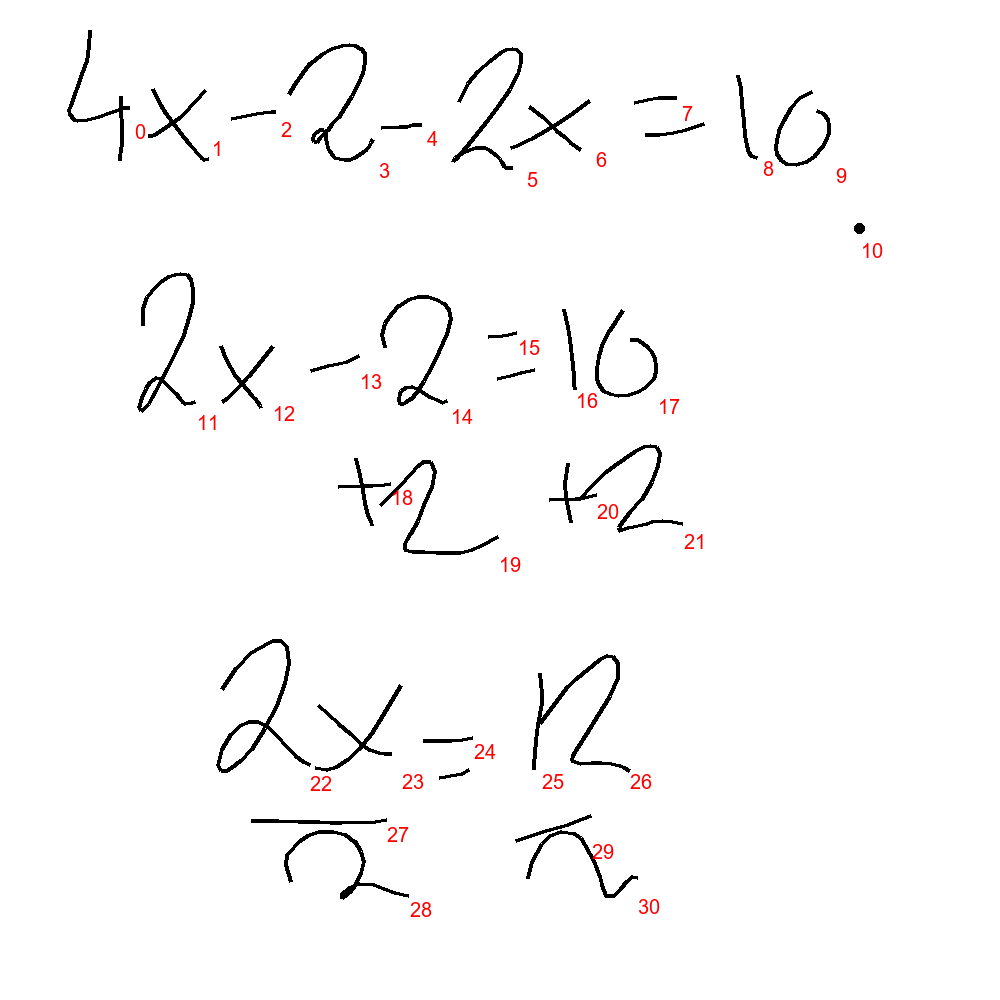 4x - 2 - 2x = 16
0 1 2 3 4 5 6 7 8 9
.
10
2x - 2 = 16
11 12 13 14 15 16 17
+2 +2
18 19 20 21
2x = 12
22 23 24 25 26
27 29
2 2
28 30